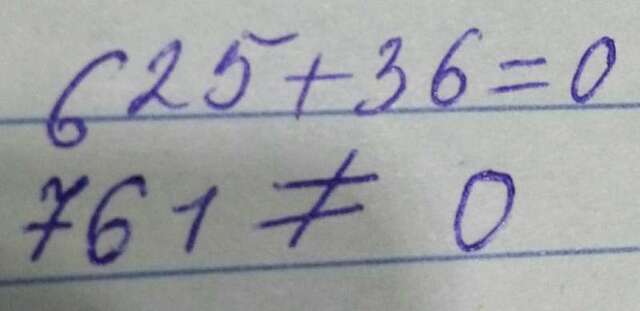 625+36=0
761 ≠ 0